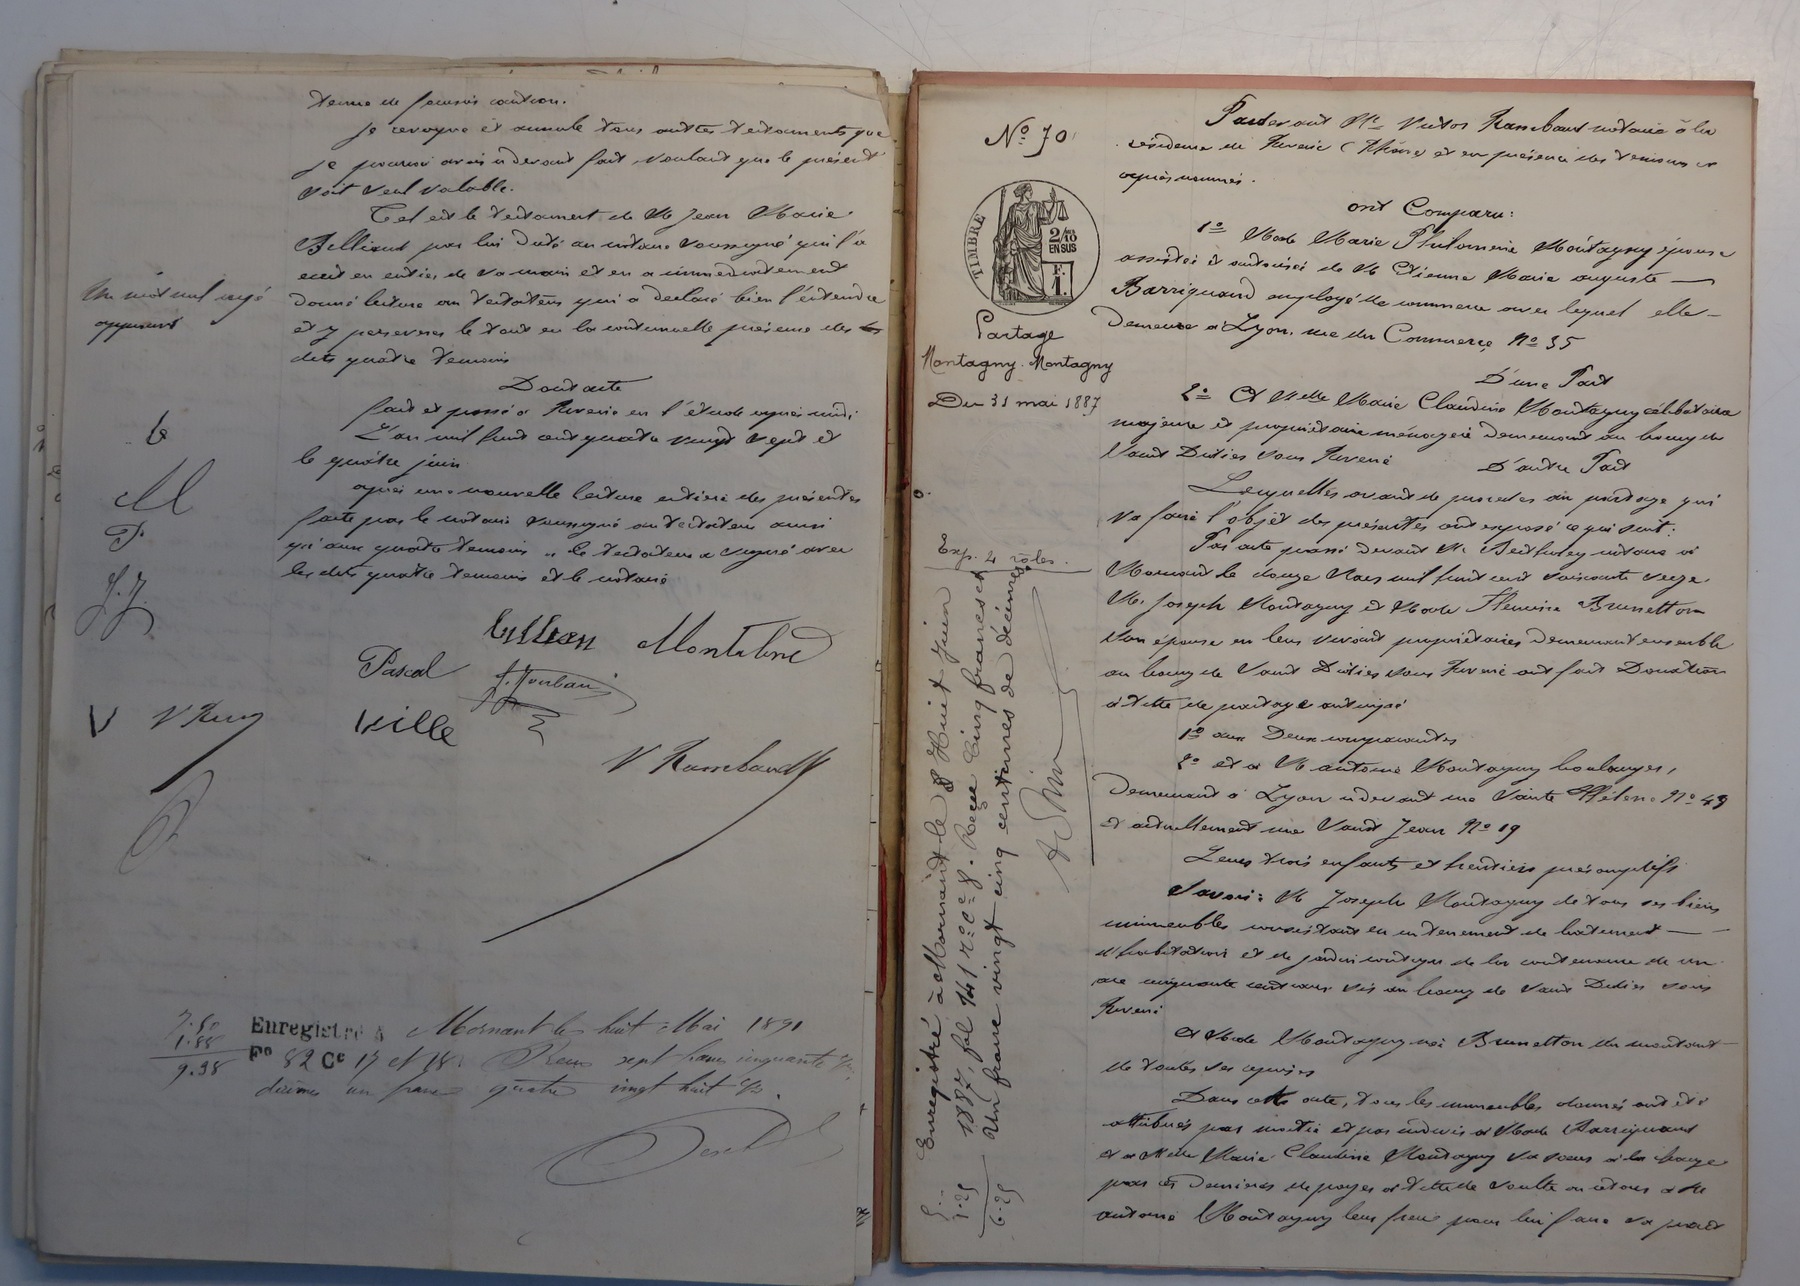 tenue de fournir caution.
Je revoque et annule tous autres testaments que
je pourrai avoir ci devant fait voulant que le présent
soit seul valable.
Tel est le testament de M Jean Marie
Billiaud par lui dicté au notaire soussigné qui l'a
écrit en entier de sa main et en a immédiatement
donné lecture au testateur qui a déclaré bien l'entendre
et y perseverer le tout en la continuelle présence des
dits quatre temoins
Dont acte
fait et passé a Riverie en l'étude après midi
L'an mil huit cent quatre vingt sept et
le quatre juin
après une nouvelle lecture entière des présentes
faite par le notaire soussigné au testateur ainsi
qu'aux quatre temoins le testateur a signé avec
les dits quatre temoins et le notaire
Un mot nul rayé
approuvé
b
M
P.
J. J
V V Ram
billian Montabrud
Pascal J. Joubani
Ville
V Rambaud
7.50
1.88
9.38
Enregistré à Mornant le huit Mai 1891
F° 82 Ce 17 et 18. Recu sept francs cinquante c/s
décimes un franc quatre vingt huit c/s.
N° 70
TIMBRE
2/10
EN SUS
F.
1.
Partage
Montagny-Montagny
Du 31 mai 1887
Exp. 4 rôles.
Enregistré à Mornant le 8 Huit juin
1887, fol 141 r° c° 8. Reçu Cinq francs et
Un franc vingt cinq centimes de décimes
5.-
1.25
6.25
Pardevant Me Victor Rambaud notaire à la
résidence de Riverie (Rhône) et en présence des temoins ci
après nommés.
ont Comparu:
1° Made Marie Philomenie Montagny épouse
assistée et autorisée de M Etienne Marie auguste
Barriquand employé de commerce avec lequel elle
Demeure à Lyon, rue du Commerce N° 35
D'une Part
2° Et Melle Marie Claudine Montagny célibataire
majeure et propriétaire ménagère demeurant au bourg de
Saint Didier sous Riverie D'autre Part
Lesquelles avant de proceder au partage qui
va faire l'objet des présentes ont exposé ce qui suit:
Par acte passé devant Me notaire à
Mornant le douze Mars mil huit cent soixante seize
M. Joseph Montagny et Made Fleurie Brunetton
son épouse en leur vivant propriétaires demeurant ensemble
au bourg de Saint Didier sous Riverie ont fait Donation
à titre de partage anticipé
1° aux Deux comparantes
2° et à M antoine Montagny boulanger,
Demeurant à Lyon ci devant rue Sainte Hélène N° 43
et actuellement rue Saint Jean N° 19
Leurs trois enfants et heritiers présomptifs
Savoir: M Joseph Montagny de tous ses biens
immeubles consistant en un tenement de batiment
d'habitation et de jardin contigus de la contenance de un
are cinquante centiares sis au bourg de Saint Didier sous
Riverie
Et Made Montagny née Brunetton du montant
de toutes ses reprises
Dans cette acte, tous les immeubles donnés ont été
attribués par moitié et par indivis à Made Barriquand
et à Melle Marie Claudine Montagny sa soeur à la charge
par ces dernières de payer à titre de soulte ou retour à M
antoine Montagny leur frère pour lui faire sa part